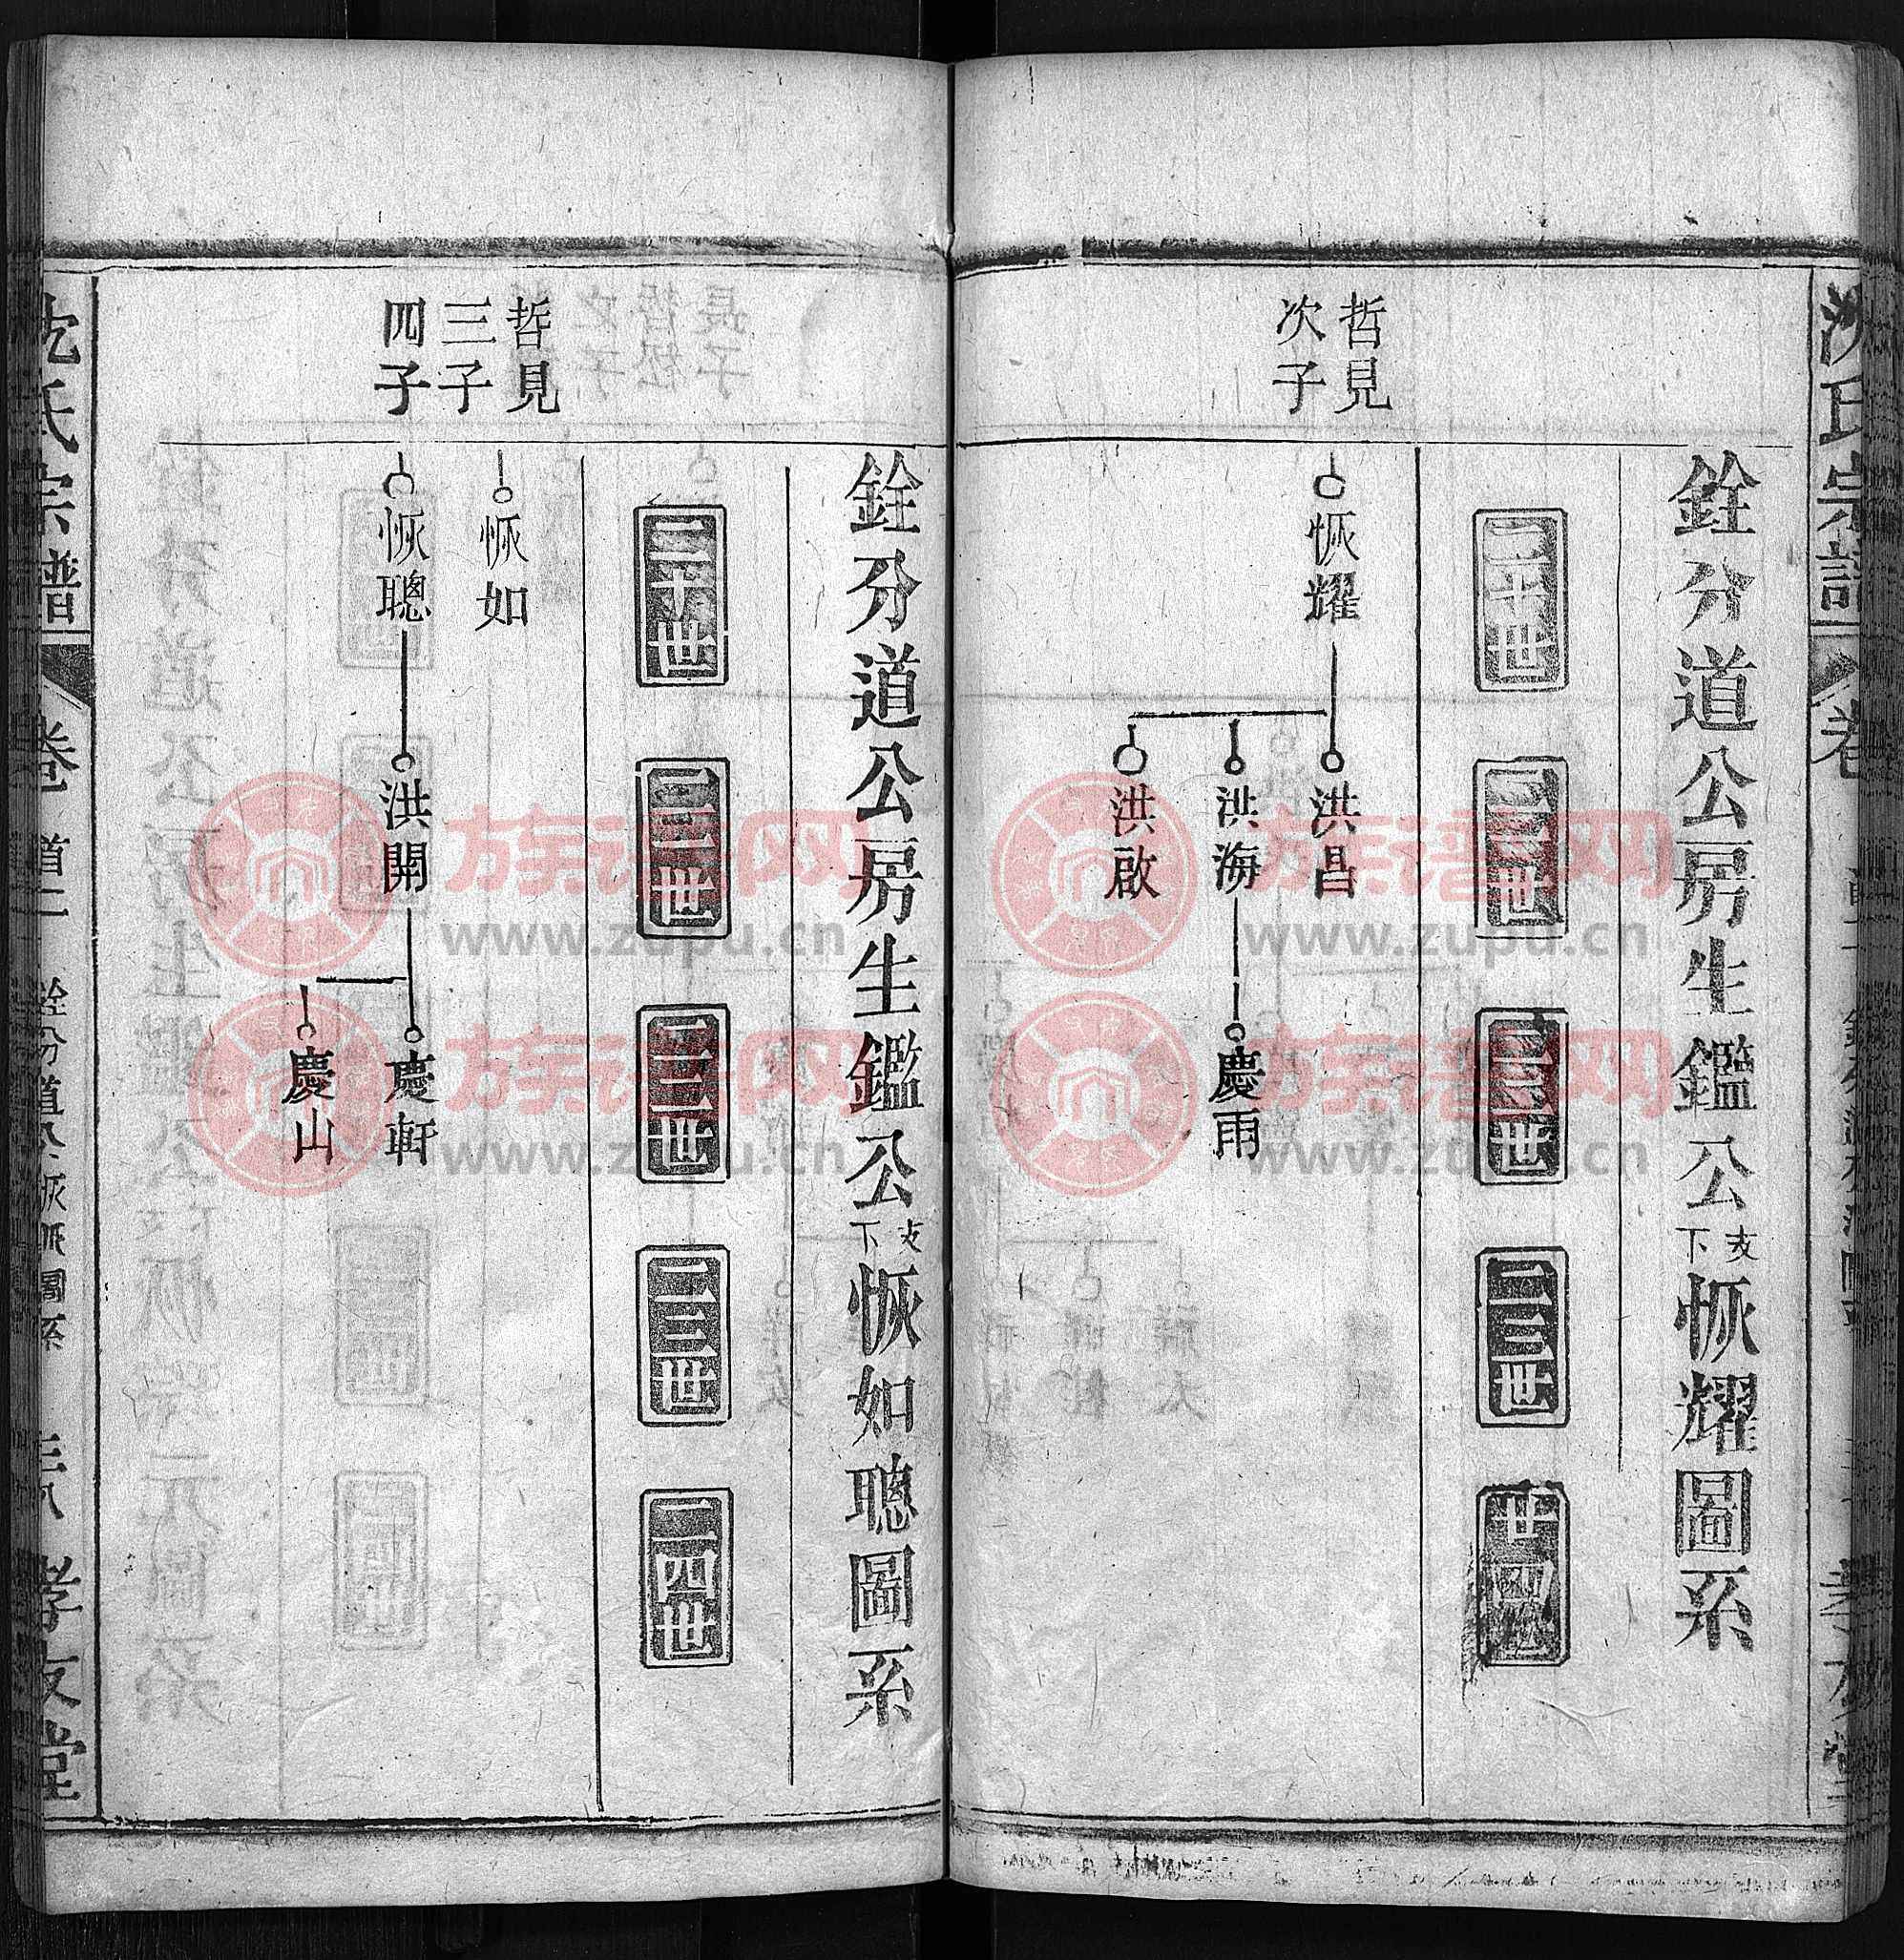 沈氏宗譜
卷
銓分道公房生鑑公支下恢耀圖系
二十世
二一世
二二世
二三世
廿四世
哲見
次子
恢耀
洪昌
洪海
慶雨
洪啟
銓分道公房生鑑公支下恢如聰圖系
二十世
二一世
二二世
二三世
二四世
哲見
三子
四子
恢如
恢聰
洪開
慶軒
慶山
沈氏宗譜
卷首二
銓分道公恢派圖系
孝友堂
族谱网
www.zupu.cn
族谱网
www.zupu.cn
族谱网
www.zupu.cn
族谱网
www.zupu.cn